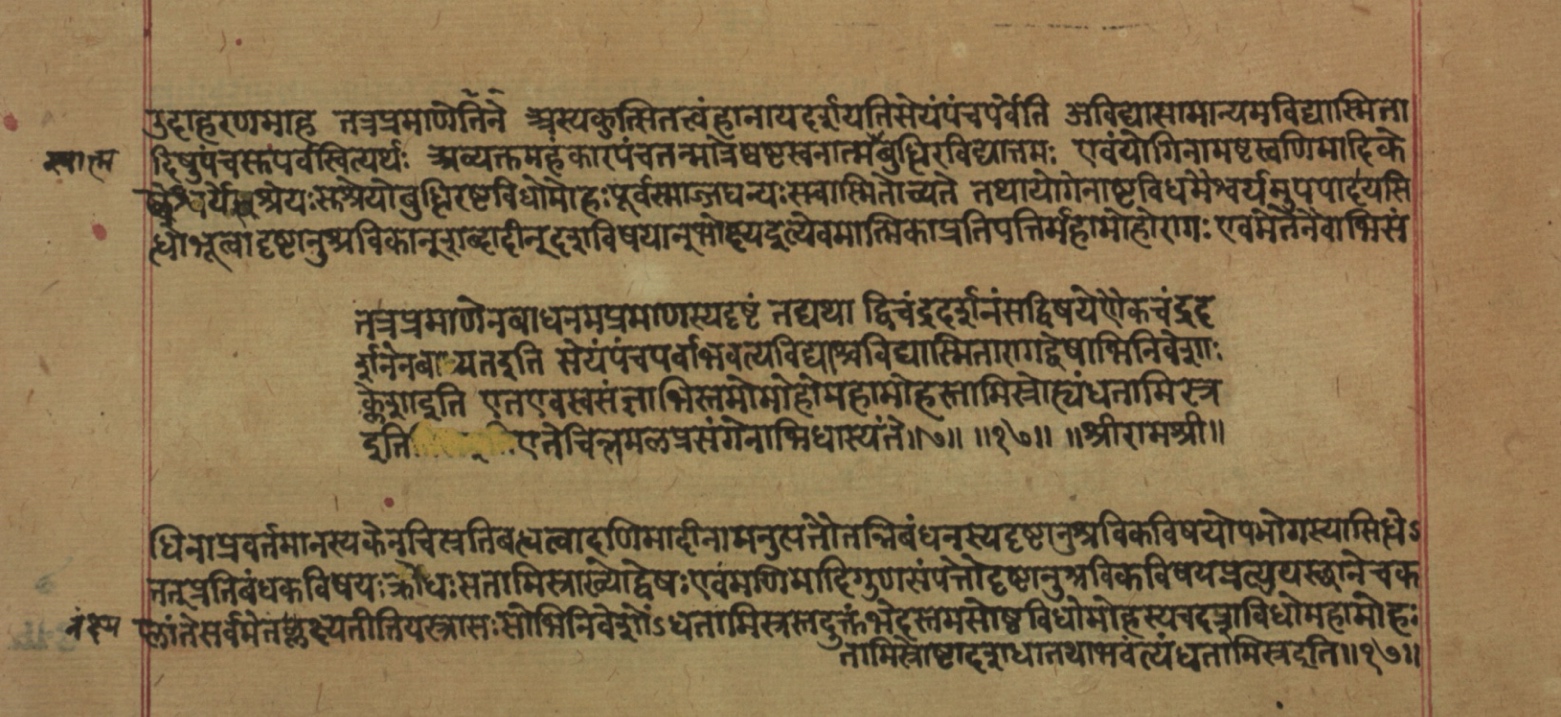 उदाहरणमाह तत्रप्रमाणेनेति अस्यकुत्सितत्वंहानायदर्शयतिसेयंपंचपर्वेति अविद्यासामान्यमविद्यास्मिता
दिषुपंचस्तपर्वस्वित्यर्थः अव्यक्तमहंकारपंचतन्मात्रेष्वष्टस्वनात्मबुद्धिरविद्यातमः एवंयोगिनामष्टस्वणिमादिके
श्रेयःस्तश्रेयोबुद्धिरष्टविधोमोहःपूर्वस्माज्जघन्यःसचास्मितोच्यते तथायोगेनाष्टविधमैश्वर्यमुपपादयसि
द्धोभूत्वादृष्टानुश्रविकान्शब्दादीन्दशविषयान्भोक्ष्यइत्येवमात्मिकाप्रतिपत्तिर्महामोहोरागः एवमेतेनैवाभिसं
तत्रप्रमाणेनबाधनमप्रमाणस्यदृष्टं तद्यथा द्विचंद्रदर्शनंसद्विषयेणैकचंद्रद
र्शनेनबा यतइति सेयंपंचपर्वाभवत्यविद्याअविद्यास्मितारागद्वेषाभिनिवेशाः
क्लेशाइति एतएवस्वसंज्ञाभिस्तमोमोहोमहामोहस्तामिस्रोह्यंधतामिस्त्र
इति एतेचित्तमलप्रसंगेनाभिधास्यंते॥७॥ ॥१७॥ ॥श्रीरामश्री॥
धिनाप्रवर्तमानस्यकेनचित्प्रतिबध्यत्वादणिमादीनामनुत्पत्तौतन्निबंधनस्यदृष्टानुश्रविकविषयोपभोगस्यासिद्धेः
तत्प्रतिबंधकविषयःक्रोधःसतामिस्त्राख्योद्वेषःएवंमणिमादिगुणसंपत्तौदृष्टानुश्रविकविषयप्रत्युपस्थानेचक
ल्पांतेसर्वमेतन्नंक्ष्यतीतियस्त्रासःसोभिनिवेशोंऽधतामिस्त्रस्तदुक्तंभेदस्तमसोष्टविधोमोहस्यचदशविधोमहामोहः
तामिस्त्रोष्टादशधातथाभवंत्यंधतामिस्त्रइति॥१७॥